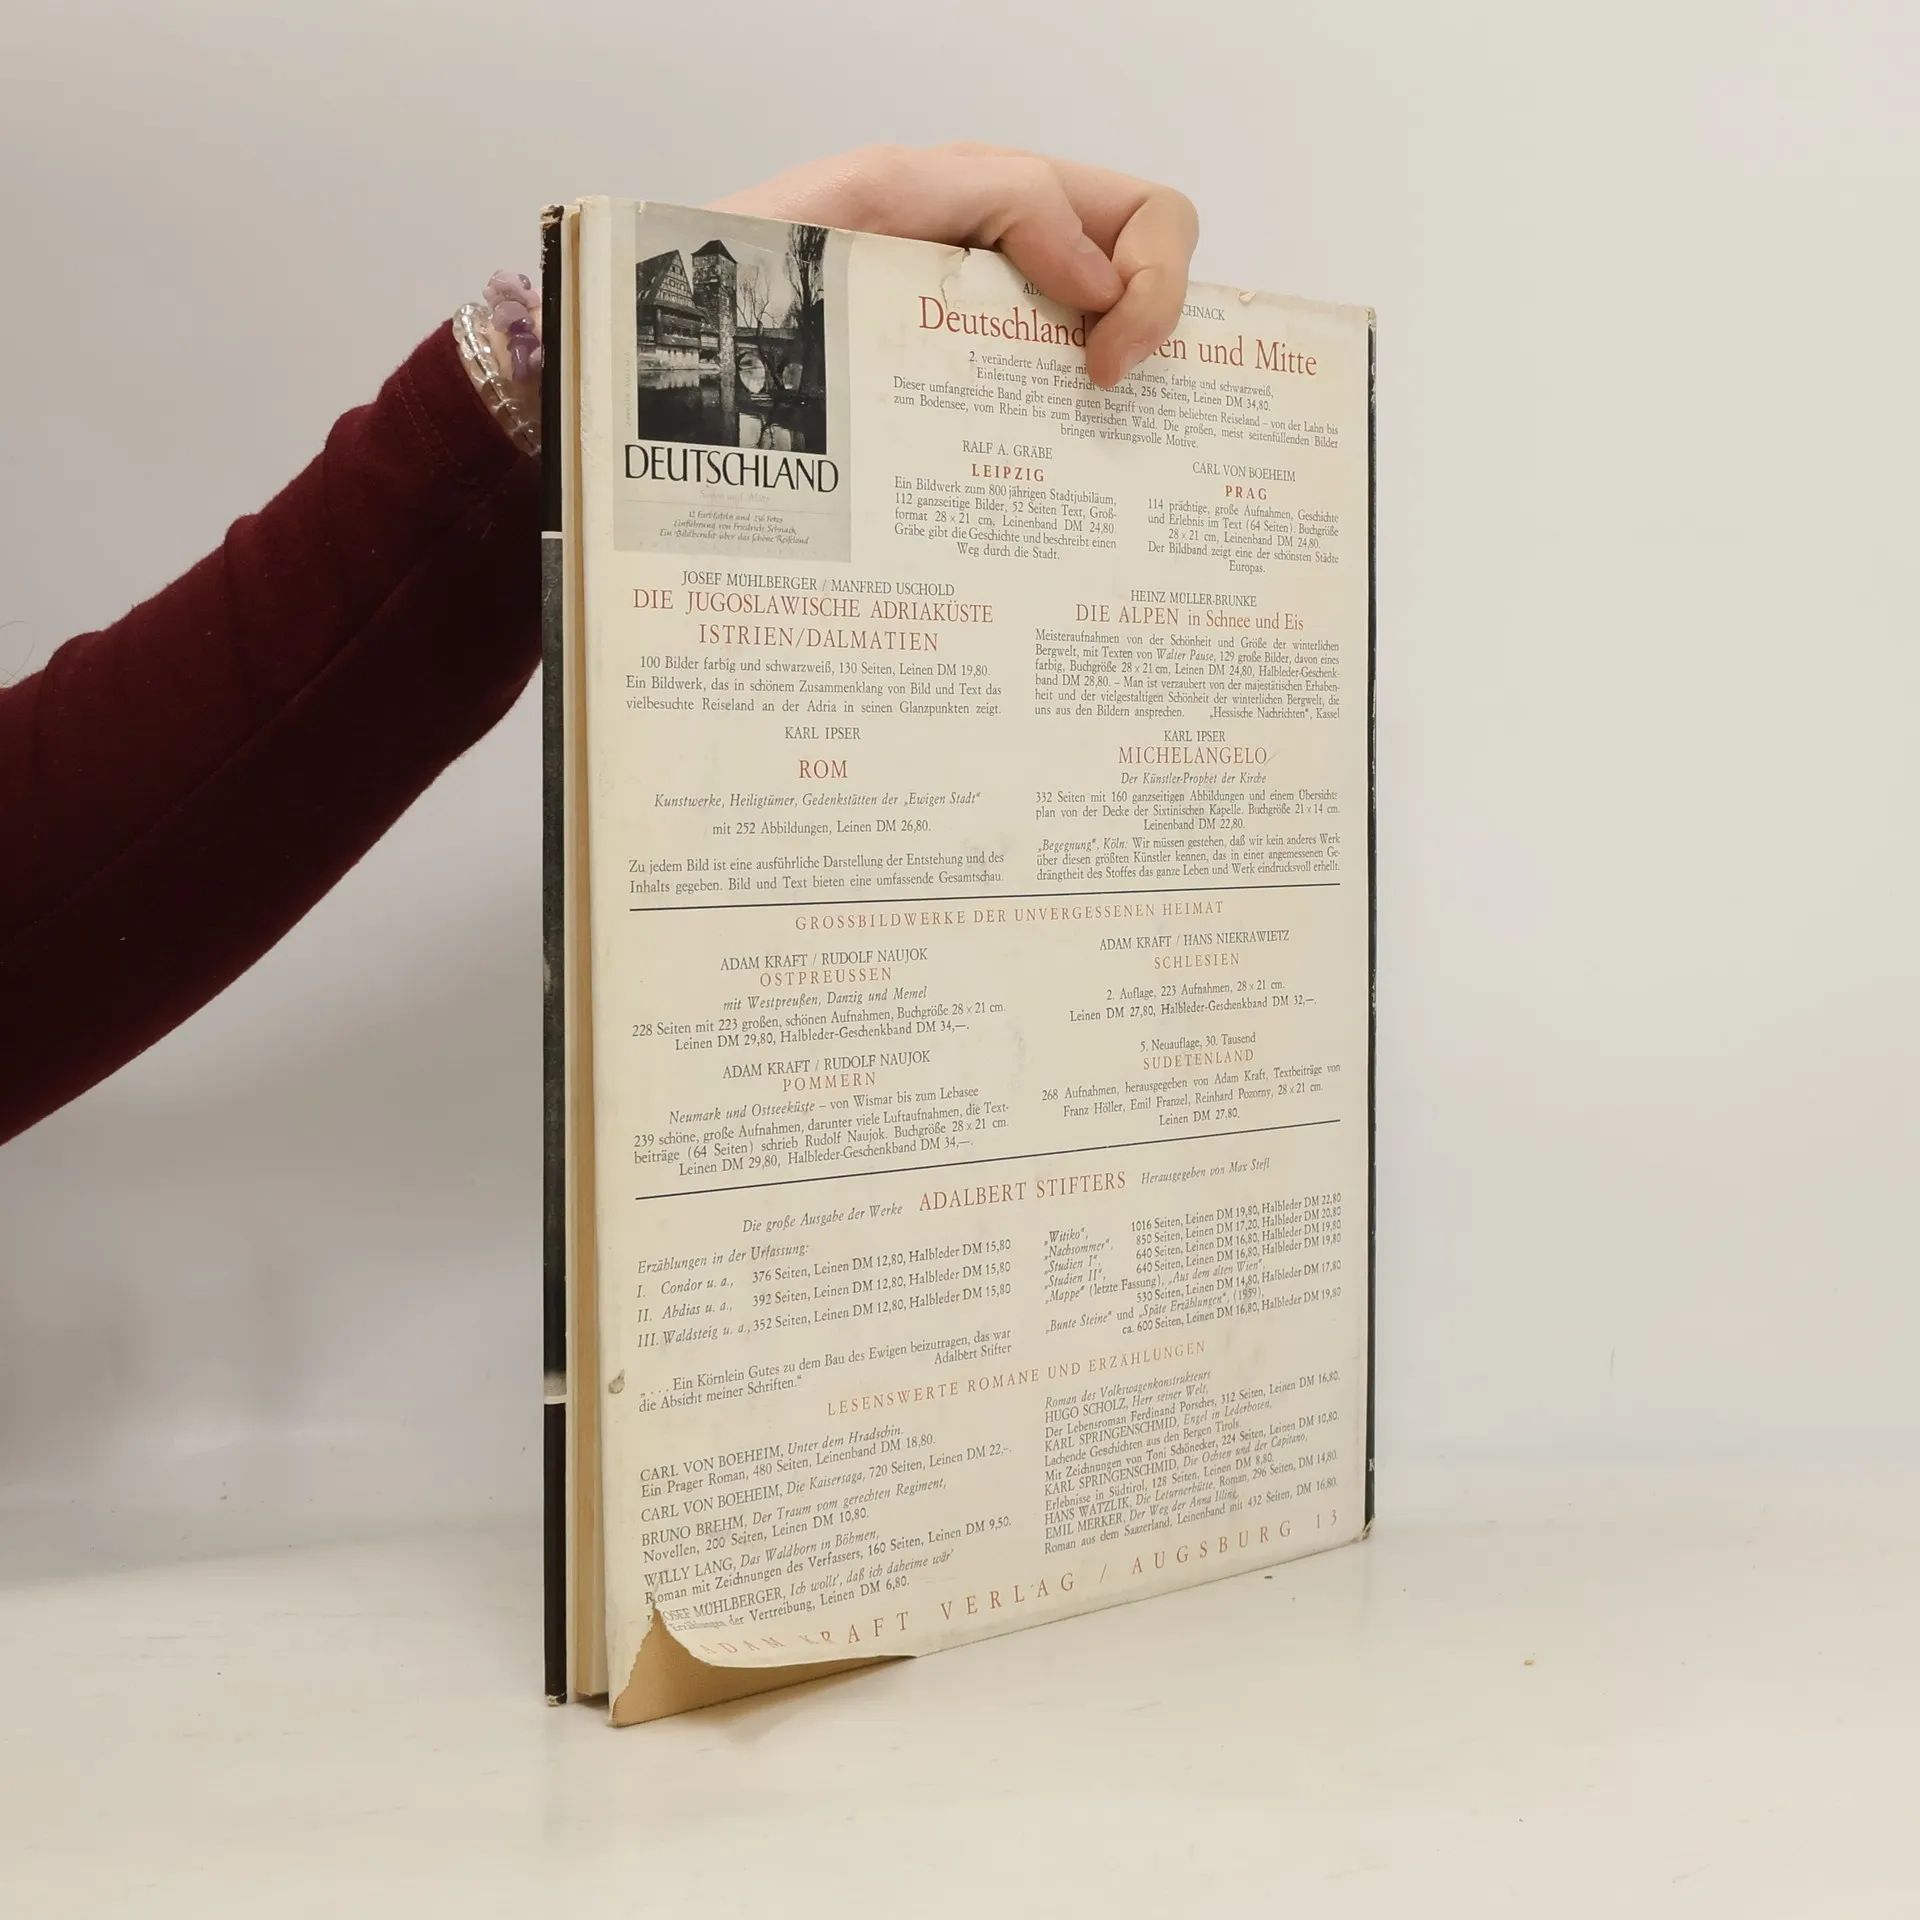 DEUTSCHLAND
Süden und Mitte
12 Farbtafeln und 236 Fotos
Einführung von Friedrich Schnack
Ein Bildbericht über das schöne Reiseland
CHNACK
Deutschland en und Mitte
2. veränderte Auflage mi nahmen, farbig und schwarzweiß,
Einleitung von Friedrich Schnack, 256 Seiten, Leinen DM 34,80.
Dieser umfangreiche Band gibt einen guten Begriff von dem beliebten Reiseland – von der Lahn bis
zum Bodensee, vom Rhein bis zum Bayerischen Wald. Die großen, meist seitenfüllenden Bilder
bringen wirkungsvolle Motive.
RALF A. GRÄBE
LEIPZIG
Ein Bildwerk zum 800jährigen Stadtjubiläum,
112 ganzseitige Bilder, 52 Seiten Text, Groß-
format 28 × 21 cm, Leinenband DM 24,80
Gräbe gibt die Geschichte und beschreibt einen
Weg durch die Stadt.
CARL VON BOEHEIM
PRAG
114 prächtige, große Aufnahmen, Geschichte
und Erlebnis im Text (64 Seiten). Buchgröße
28 × 21 cm, Leinenband DM 24,80.
Der Bildband zeigt eine der schönsten Städte
Europas.
JOSEF MÜHLBERGER / MANFRED USCHOLD
DIE JUGOSLAWISCHE ADRIAKÜSTE
ISTRIEN/DALMATIEN
100 Bilder farbig und schwarzweiß, 130 Seiten, Leinen DM 19,80.
Ein Bildwerk, das in schönem Zusammenklang von Bild und Text das
vielbesuchte Reiseland an der Adria in seinen Glanzpunkten zeigt.
HEINZ MÜLLER-BRUNKE
DIE ALPEN in Schnee und Eis
Meisteraufnahmen von der Schönheit und Größe der winterlichen
Bergwelt, mit Texten von Walter Pause, 129 große Bilder, davon eines
farbig, Buchgröße 28 × 21 cm, Leinen DM 24,80, Halbleder-Geschenk-
band DM 28,80. – Man ist verzaubert von der majestätischen Erhaben-
heit und der vielgestaltigen Schönheit der winterlichen Bergwelt, die
uns aus den Bildern ansprechen. „Hessische Nachrichten“, Kassel
KARL IPSER
ROM
Kunstwerke, Heiligtümer, Gedenkstätten der „Ewigen Stadt“
mit 252 Abbildungen, Leinen DM 26,80.
Zu jedem Bild ist eine ausführliche Darstellung der Entstehung und des
Inhalts gegeben. Bild und Text bieten eine umfassende Gesamtschau.
KARL IPSER
MICHELANGELO
Der Künstler-Prophet der Kirche
332 Seiten mit 160 ganzseitigen Abbildungen und einem Übersichts-
plan von der Decke der Sixtinischen Kapelle. Buchgröße 21 × 14 cm.
Leinenband DM 22,80.
„Begegnung“, Köln: Wir müssen gestehen, daß wir kein anderes Werk
über diesen größten Künstler kennen, das in einer angemessenen Ge-
drängtheit des Stoffes das ganze Leben und Werk eindrucksvoll erhellt.
GROSSBILDWERKE DER UNVERGESSENEN HEIMAT
ADAM KRAFT / RUDOLF NAUJOK
OSTPREUSSEN
mit Westpreußen, Danzig und Memel
228 Seiten mit 223 großen, schönen Aufnahmen, Buchgröße 28 × 21 cm.
Leinen DM 29,80, Halbleder-Geschenkband DM 34,—.
ADAM KRAFT / HANS NIEKRAWIETZ
SCHLESIEN
2. Auflage, 223 Aufnahmen, 28 × 21 cm.
Leinen DM 27,80, Halbleder-Geschenkband DM 32,—.
ADAM KRAFT / RUDOLF NAUJOK
POMMERN
Neumark und Ostseeküste – von Wismar bis zum Lebasee
239 schöne, große Aufnahmen, darunter viele Luftaufnahmen, die Text-
beiträge (64 Seiten) schrieb Rudolf Naujok. Buchgröße 28 × 21 cm.
Leinen DM 29,80, Halbleder-Geschenkband DM 34,—.
5. Neuauflage, 30. Tausend
SUDETENLAND
268 Aufnahmen, herausgegeben von Adam Kraft, Textbeiträge von
Franz Höller, Emil Franzel, Reinhard Pozorny, 28 × 21 cm.
Leinen DM 27,80.
Die große Ausgabe der Werke ADALBERT STIFTERS Herausgegeben von Max Stefl
Erzählungen in der Urfassung:
I. Condor u. a., 376 Seiten, Leinen DM 12,80, Halbleder DM 15,80
II. Abdias u. a., 392 Seiten, Leinen DM 12,80, Halbleder DM 15,80
III. Waldsteig u. a., 352 Seiten, Leinen DM 12,80, Halbleder DM 15,80
„. . . Ein Körnlein Gutes zu dem Bau des Ewigen beizutragen, das war
die Absicht meiner Schriften.“ Adalbert Stifter
„Witiko“, 1016 Seiten, Leinen DM 19,80, Halbleder DM 22,80
„Nachsommer“, 850 Seiten, Leinen DM 17,20, Halbleder DM 20,80
„Studien I“, 640 Seiten, Leinen DM 16,80, Halbleder DM 19,80
„Studien II“, 640 Seiten, Leinen DM 16,80, Halbleder DM 19,80
„Mappe“ (letzte Fassung), „Aus dem alten Wien“,
530 Seiten, Leinen DM 14,80, Halbleder DM 17,80
„Bunte Steine“ und „Späte Erzählungen“, (1959),
ca. 600 Seiten, Leinen DM 16,80, Halbleder DM 19,80
LESENSWERTE ROMANE UND ERZÄHLUNGEN
CARL VON BOEHEIM, Unter dem Hradschin.
Ein Prager Roman, 480 Seiten, Leinenband DM 18,80.
CARL VON BOEHEIM, Die Kaisersaga, 720 Seiten, Leinen DM 22,–.
BRUNO BREHM, Der Traum vom gerechten Regiment,
Novellen, 200 Seiten, Leinen DM 10,80.
WILLY LANG, Das Waldhorn in Böhmen,
Roman mit Zeichnungen des Verfassers, 160 Seiten, Leinen DM 9,50.
JOSEF MÜHLBERGER, Ich wollt', daß ich daheime wär'
Erzählungen der Vertreibung, Leinen DM 6,80.
Roman des Volkswagenkonstrukteurs
HUGO SCHOLZ, Herr seiner Welt,
Der Lebensroman Ferdinand Porsches, 312 Seiten, Leinen DM 16,80.
KARL SPRINGENSCHMID, Engel in Lederhosen,
Lachende Geschichten aus den Bergen Tirols.
Mit Zeichnungen von Toni Schönecker, 224 Seiten, Leinen DM 10,80.
KARL SPRINGENSCHMID, Die Ochsen und der Capitano,
Erlebnisse in Südtirol, 128 Seiten, Leinen DM 8,80.
HANS WATZLIK, Die Leturnerhütte, Roman, 296 Seiten, DM 14,80.
EMIL MERKER, Der Weg der Anna Illing,
Roman aus dem Saazerland, Leinenband mit 432 Seiten, DM 16,80.
ADAM KRAFT VERLAG / AUGSBURG 13